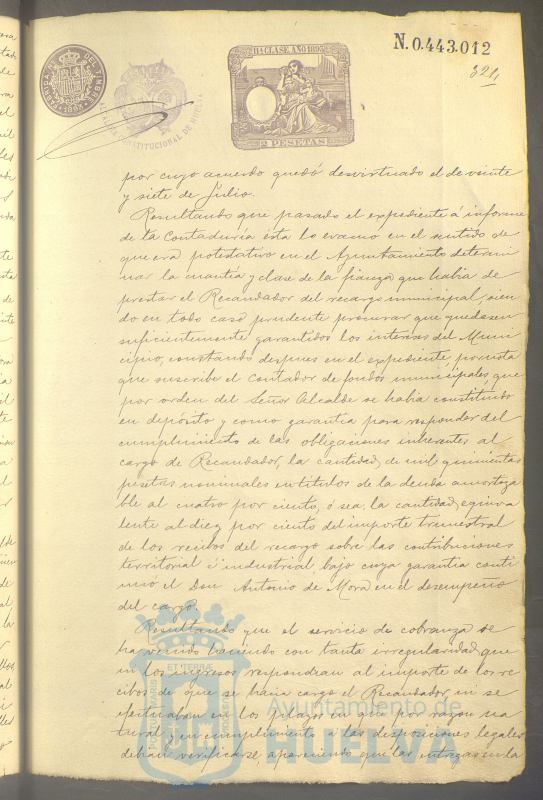 N.0.443.012
321
11ª CLASE. AÑO 1895
2 PESETAS
por cuyo acuerdo quedó desvirtuado el de veinte
y siete de Julio.
Resultando que pasado el expediente á informe
de la Contaduría ésta lo evacuó en el sentido de
que era potestativo en el Ayuntamiento determi
nar la cuantía y clase de la fianza que había de
prestar el Recaudador del recargo municipal, sien
do en todo caso prudente procurar que quedasen
suficientemente garantidos los intereses del Muni
cipio, constando despues en el expediente, por nota
que suscribe el Contador de fondos municipales, que
por orden del Señor Alcalde se había constituido
en depósito y como garantia para responder del
cumplimiento de las obligaciones inherentes al
cargo de Recaudador, la cantidad de mil quinientas
pesetas nominales en títulos de la deuda amortiza
ble al cuatro por ciento, ó sea, la cantidad equiva
lente al diez por ciento del importe trimestral
de los recibos del recargo sobre las contribuciones
territorial é industrial, bajo cuya garantia conti
nuó el Don Antonio de Mora en el desempeño
del cargo.
Resultando que el servicio de cobranza se
ha venido haciendo con tanta irregularidad, que
ni los ingresos respondian al importe de los re
cibos de que se hacia cargo el Recaudador, ni se
efectuaban en los plazos en que por razon na
tural y en cumplimiento á las disposiciones legales
debian verificarse, apareciendo que las entregas en la
Ayuntamiento de
HUELVA